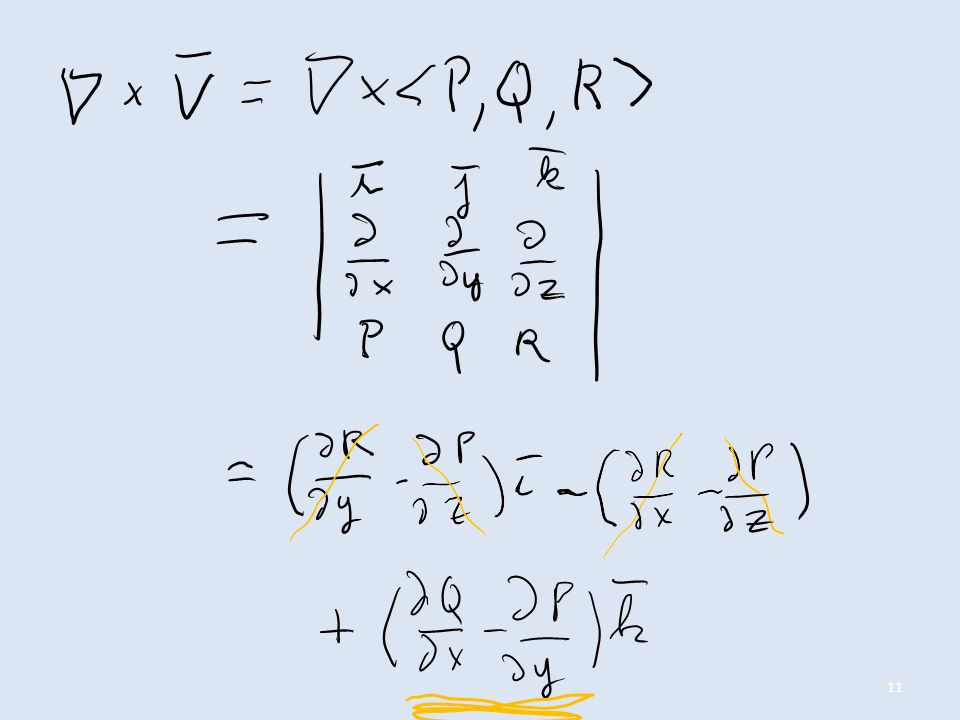 ∇ × V̄ = ∇ × < P, Q, R >
= | ī j̄ k̄ |
| ∂/∂x ∂/∂y ∂/∂z |
| P Q R |
= (∂R/∂y - ∂P/∂z) ī - (∂R/∂x - ∂P/∂z)
+ (∂Q/∂x - ∂P/∂y) k̄
11